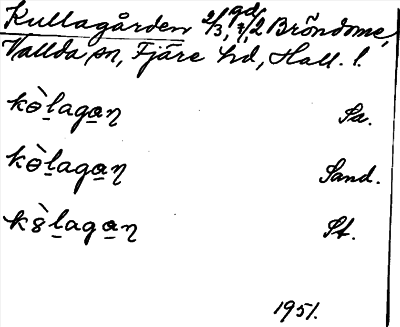 Kullagården 2/3, gd 7/2 Bröndome,
Vallda sn, Fjäre hd, Hall. l.
kɵ̀l̠aga̠ɳ Sa.
kɵ̀l̠aga̠ɳ Sand.
k8̀l̠aga̠ɳ St.
1951.